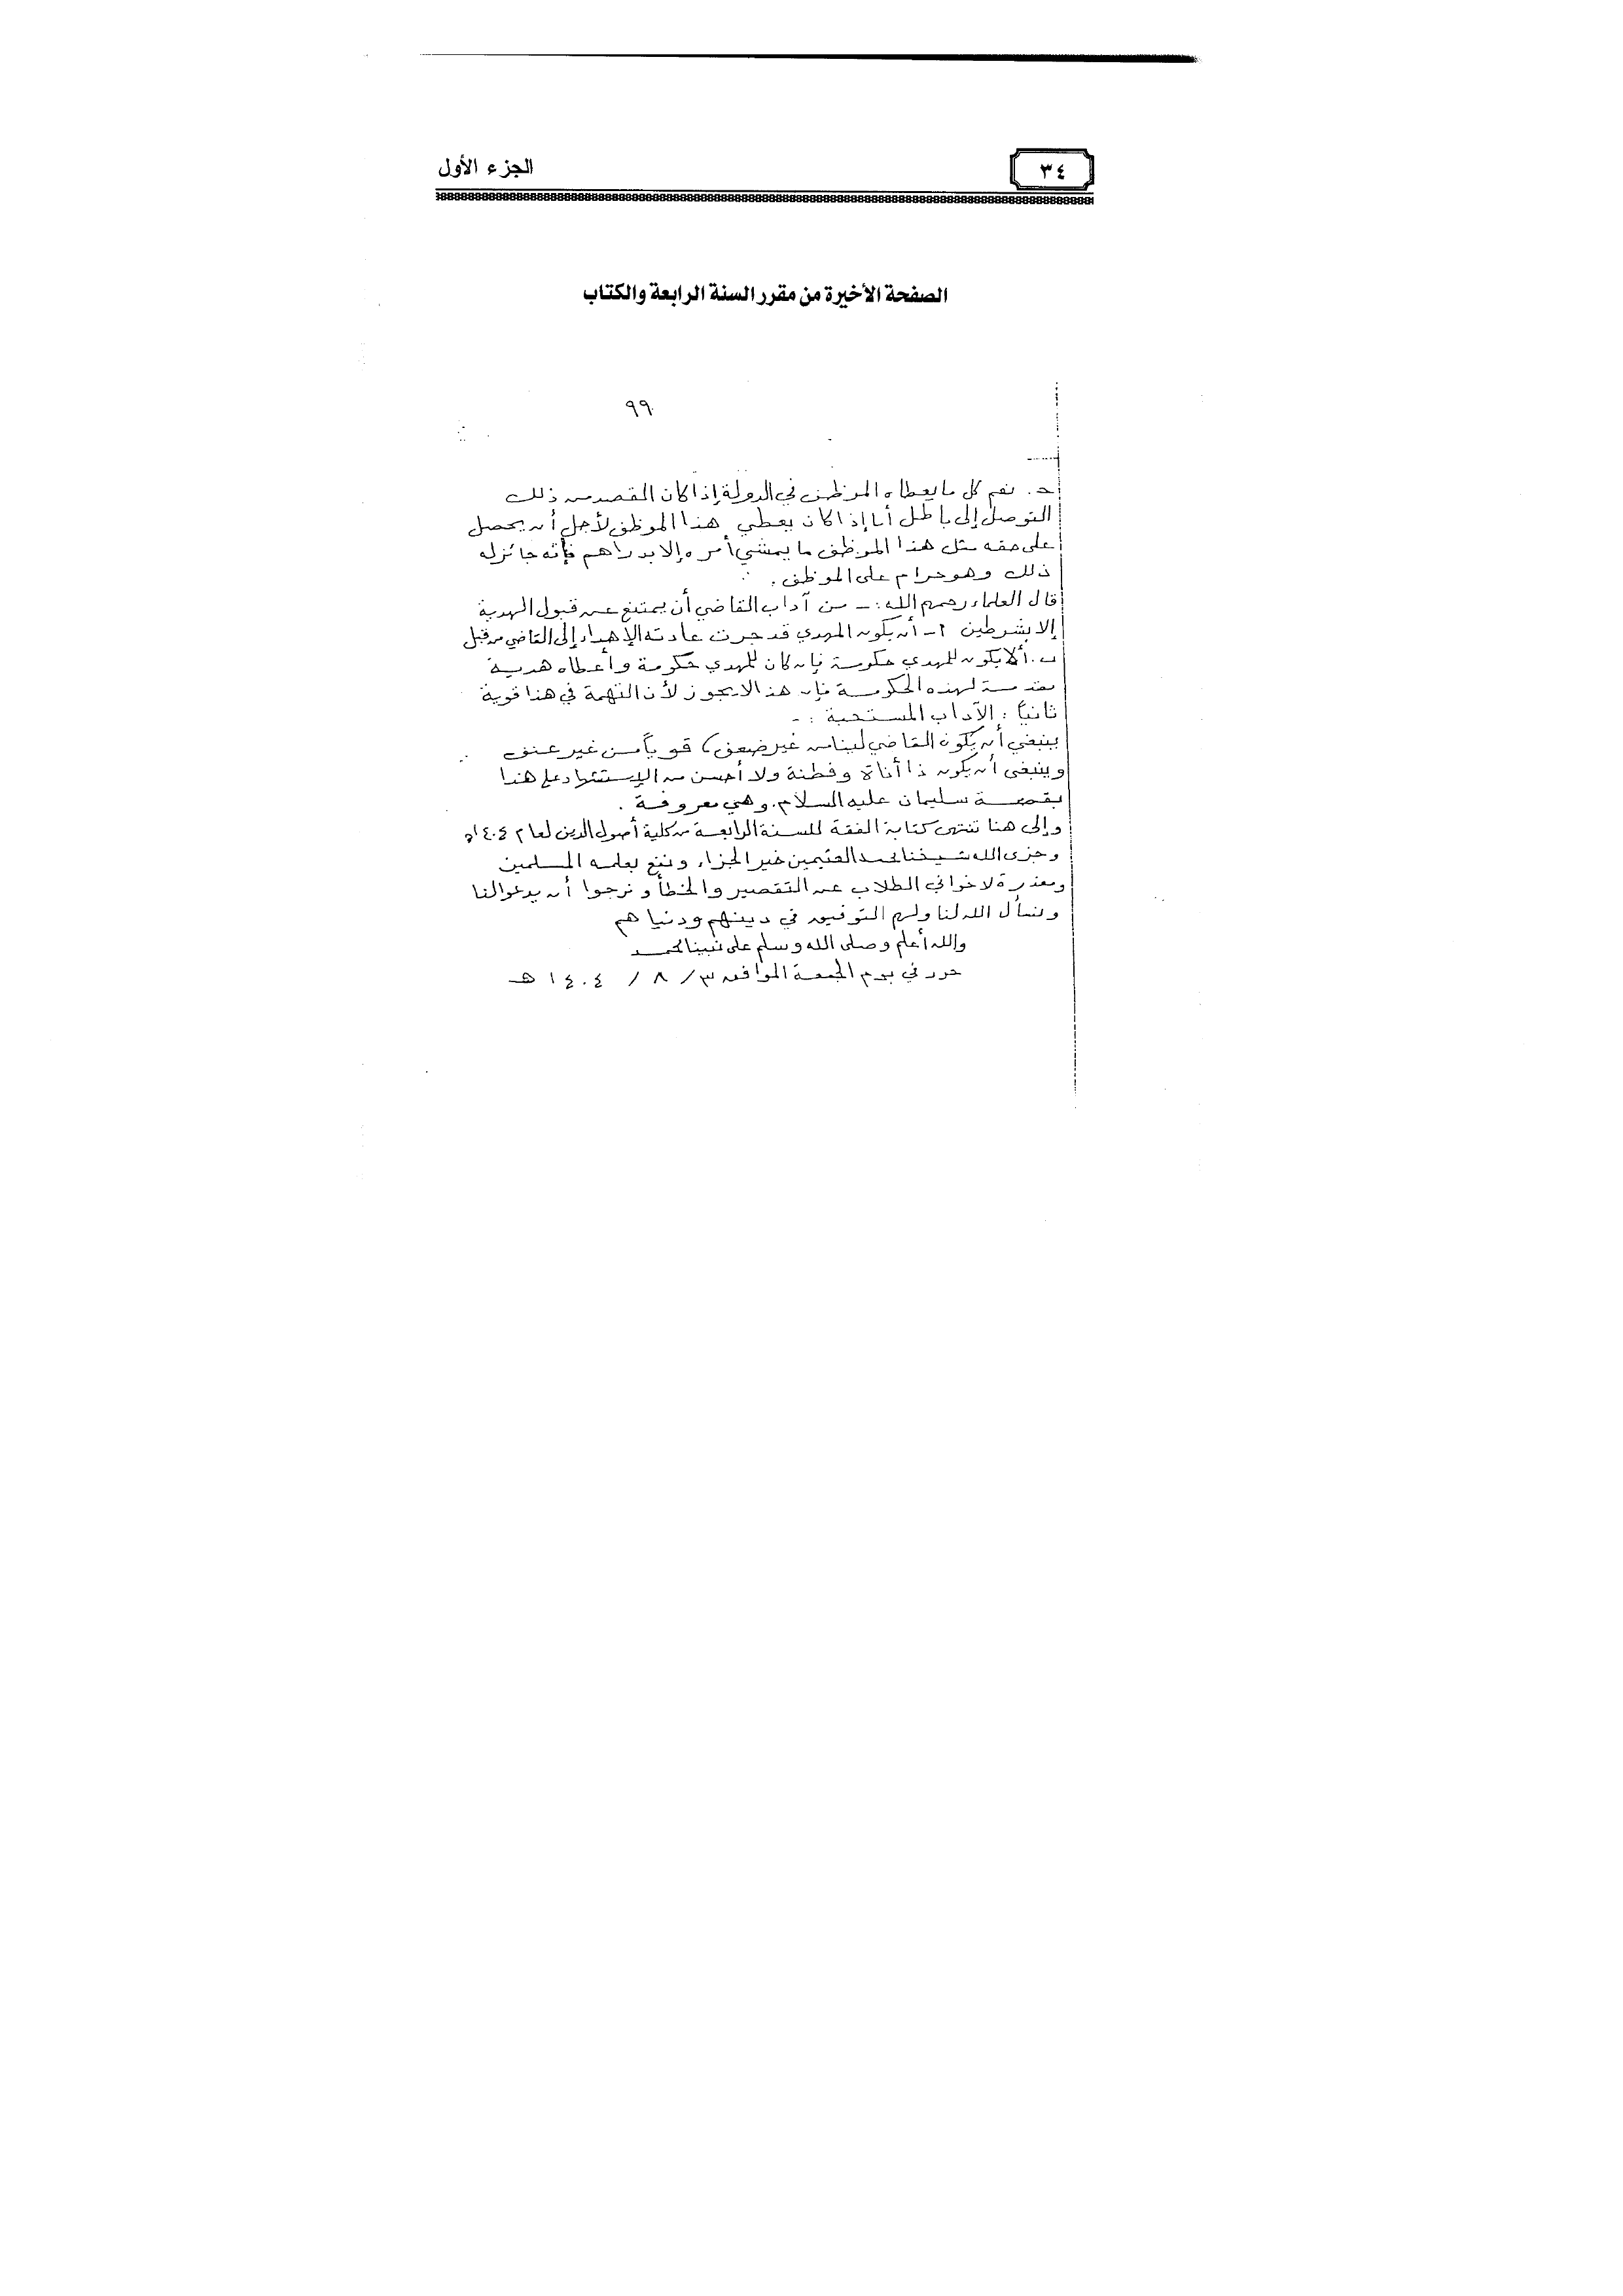 ٣٤
الجزء الأول
الصفحة الأخيرة من مقرر السنة الرابعة والكتاب
٩٩
جـ. نعم كل ما يعطاه الموظف في الدولة إذا كان القصد من ذلك
التوصل إلى باطل أما إذا كان يعطي هذا الموظف لأجل أن يحصل
على حقه مثل هذا الموظف ما يمشي أمره إلا بدراهم فإنه جائز له
ذلك وهو حرام على الموظف.
قال العلماء رحمهم الله :- من آداب القاضي أن يمتنع عن قبول الهدية
إلا بشرطين ١- أن يكون المهدي قد جرت عادته الإهداء إلى القاضي من قبل
ب. ألا يكون للمهدي حكومة فإن كان للمهدي حكومة وأعطاه هدية
مقدمة لهذه الحكومة فإن هذا لا يجوز لأن التهمة في هذا قوية
ثانياً : الآداب المستحبة :-
ينبغي أن يكون القاضي ليناً من غير ضعف، قوياً من غير عنف
وينبغي أن يكون ذا أناة وفطنة ولا أحسن من الإستشهاد على هذا
بقصة سليمان عليه السلام. وهي معروفة .
وإلى هنا تنتهى كتابة الفقة للسنة الرابعة من كلية أصول الدين لعام ١٤٠٤هـ
وجزى الله شيخنا محمد العثيمين خير الجزاء ونفع بعلمه المسلمين
ومعذرة لاخواني الطلاب عن التقصير والخطأ ونرجوا أن يدعوا لنا
ونسأل الله لنا ولهم التوفيق في دينهم ودنياهم
والله أعلم وصلى الله وسلم على نبينا محمد
حرر في يوم الجمعة الموافق ٣ / ٨ / ١٤٠٤ هـ